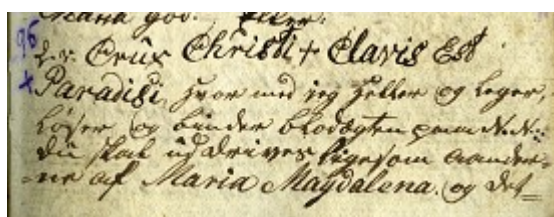 Maria god.
96
d. v. Crux Christi + Clavis Est
+ Paradisi, hvor med jeg heller og leger,
Løser, og binder blodægten paa N. N.:
du skal uddrives ligesom aander-
ne af Maria Magdalena. og det